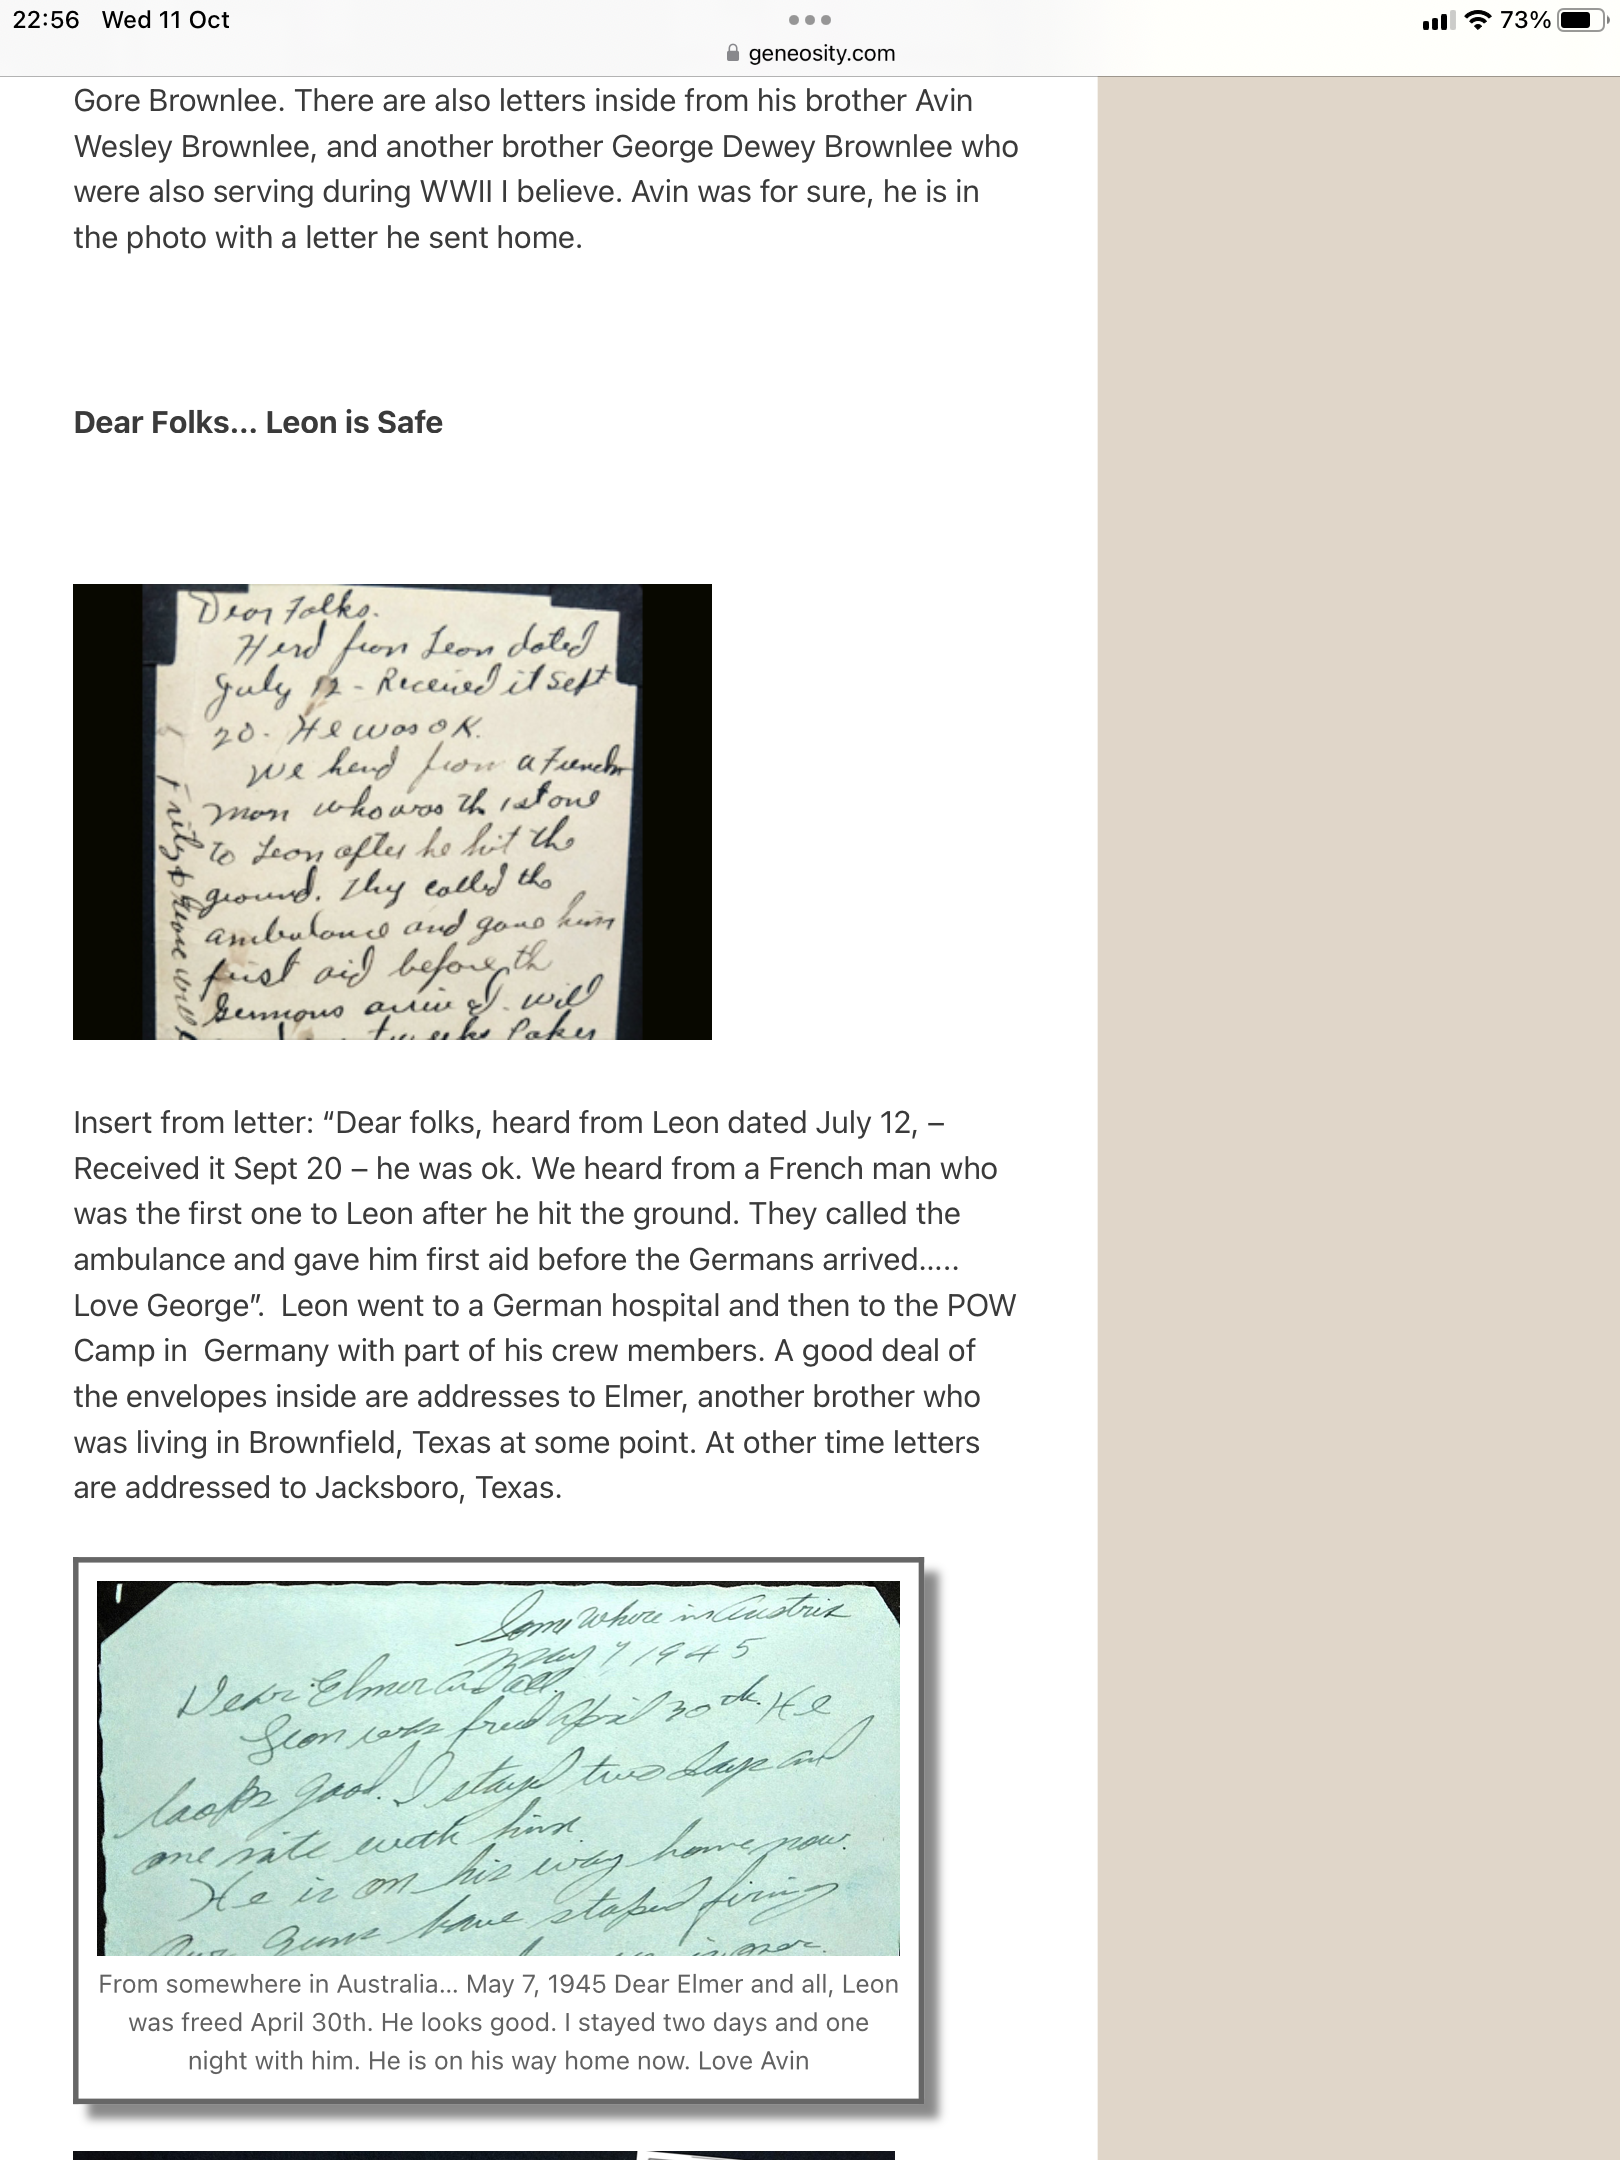 22:56 Wed 11 Oct
73%
geneosity.com
Gore Brownlee. There are also letters inside from his brother Avin
Wesley Brownlee, and another brother George Dewey Brownlee who
were also serving during WWII I believe. Avin was for sure, he is in
the photo with a letter he sent home.
Dear Folks... Leon is Safe
Dear Folks.
Herd from Leon dated
July 12 - Received it Sept
20. He was OK.
We herd from a French
man who was th 1st one
to Leon after he hit the
ground. They called the
ambulance and gave him
first aid before th
Germans arrived. will
Insert from letter: “Dear folks, heard from Leon dated July 12, –
Received it Sept 20 – he was ok. We heard from a French man who
was the first one to Leon after he hit the ground. They called the
ambulance and gave him first aid before the Germans arrived.....
Love George”.  Leon went to a German hospital and then to the POW
Camp in  Germany with part of his crew members. A good deal of
the envelopes inside are addresses to Elmer, another brother who
was living in Brownfield, Texas at some point. At other time letters
are addressed to Jacksboro, Texas.
Somewhere in Austria
May 7 1945
Dear Elmer and all.
Leon was freed April 30th. He
looks good. I stayed two days and
one nite with him.
He is on his way home now.
Our Guns have stoped firing
From somewhere in Australia... May 7, 1945 Dear Elmer and all, Leon
was freed April 30th. He looks good. I stayed two days and one
night with him. He is on his way home now. Love Avin